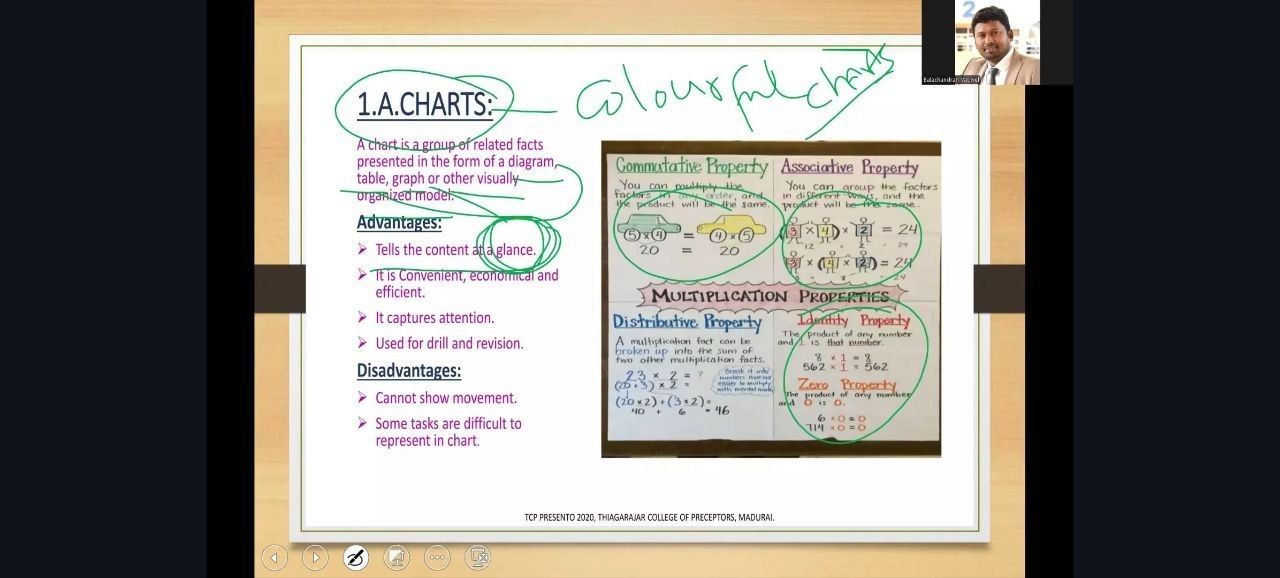 1.A.CHARTS:
colourful charts
A chart is a group of related facts
presented in the form of a diagram,
table, graph or other visually
organized model.
Advantages:
Tells the content at a glance.
It is Convenient, economical and
efficient.
It captures attention.
Used for drill and revision.
Disadvantages:
Cannot show movement.
Some tasks are difficult to
represent in chart.
Commutative Property
You can multiply the
factors in any order, and
the product will be the same.
5 x 4 = 4 x 5
20 = 20
Associative Property
You can group the factors
in different ways, and the
product will be the same.
(3 x 4) x 2 = 24
12 2 24
3 x (4 x 2) = 24
8 24
MULTIPLICATION PROPERTIES
Distributive Property
A multiplication fact can be
broken up into the sum of
two other multiplication facts.
23 x 2 = ?
(20+3) x 2 =
(20 x 2) + (3 x 2) =
40 + 6 = 46
Break it into
numbers that are
easier to multiply
with mental math
Identity Property
The product of any number
and 1 is that number.
8 x 1 = 8
562 x 1 = 562
Zero Property
The product of any number
and 0 is 0.
6 x 0 = 0
714 x 0 = 0
TCP PRESENTO 2020, THIAGARAJAR COLLEGE OF PRECEPTORS, MADURAI.
2
Balachandran Vadivel